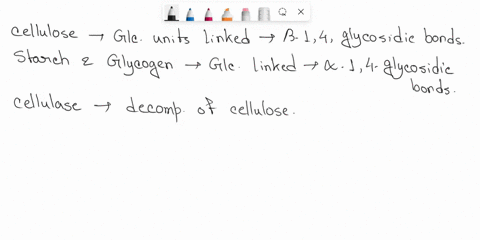 cellulose → Glc. units linked → β-1,4, glycosidic bonds.
Starch & Glycogen → Glc. linked → α-1,4-glycosidic
bonds.
cellulase → decomp. of cellulose.